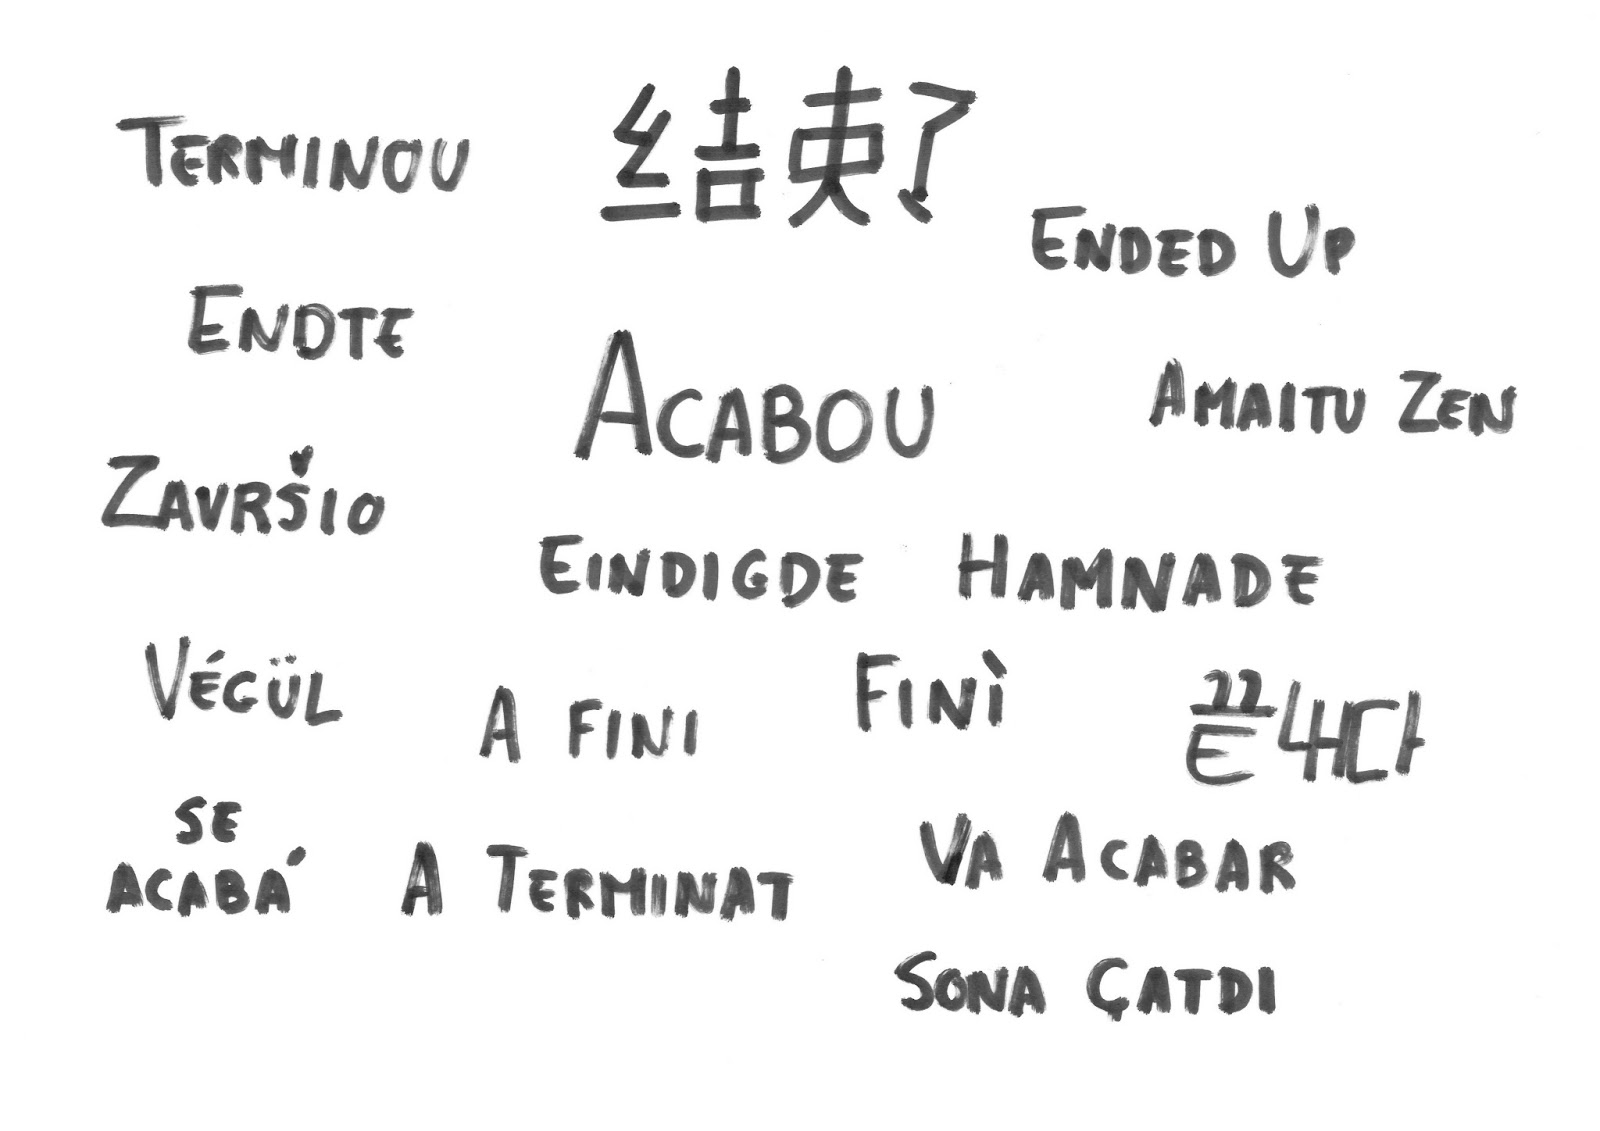 TERMINOU
结束了
ENDED UP
ENDTE
ACABOU
AMAITU ZEN
ZAVRŠIO
EINDIGDE
HAMNADE
VÉGÜL
A FINI
FINÌ
끝냈다
SE
ACABÁ
A TERMINAT
VA ACABAR
SONA ÇATDI